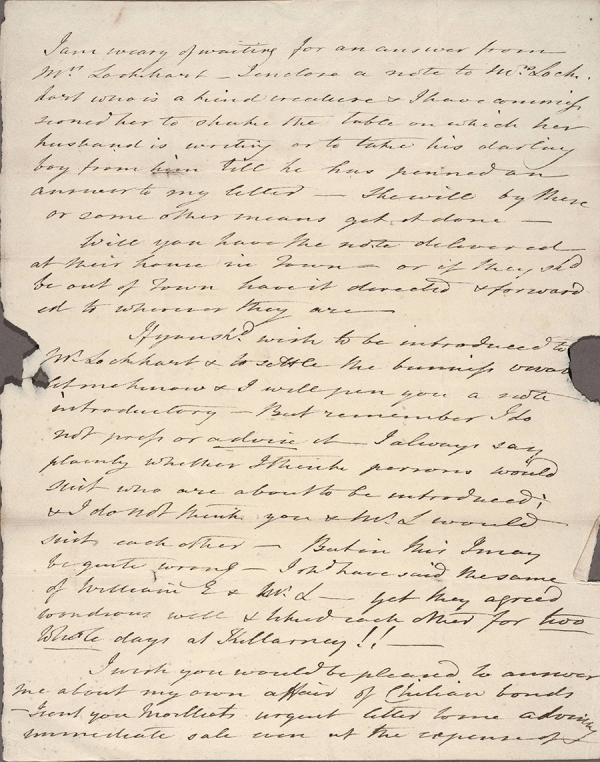 I am weary of waiting for an answer from
Mr. Lockhart – I enclose a note to Mrs. Lock-
hart who is a kind creature & I have commis
sioned her to shake the table on which her
husband is writing or to take his darling
boy from him till he has penned an
answer to my letter – She will by these
or some other means get it done –
Will you have the note delivered
at their house in Town – or if they shd
be out of Town have it directed & forward
ed to wherever they are –
If you shd. wish to be introduced to
Mr. Lockhart & to settle the business
let me know & I will pen you a note
introductory – But remember I do
not press or advise it – I always say
plainly whether I think persons would
suit who are about to be introduced;
& I do not think you & Mr. L would
suit each other – But in this I may
be quite wrong – I shd. have said the same
of William E & Mr. L – yet they agreed
wondrous well & liked each other for two
Whole days at Killarney!! –
I wish you would be pleased to answer
me about my own affair of Chilian bonds
– I sent you urgent letter to me advising
immediate sale even at the expense of